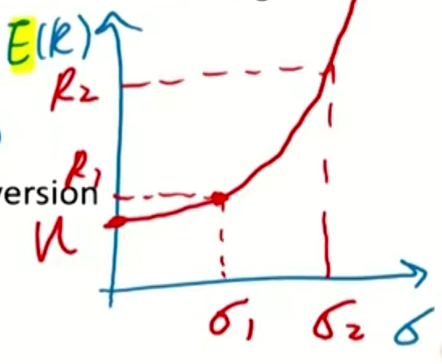 E(R)
R₂
R₁
version
U
σ₁ σ₂ σ